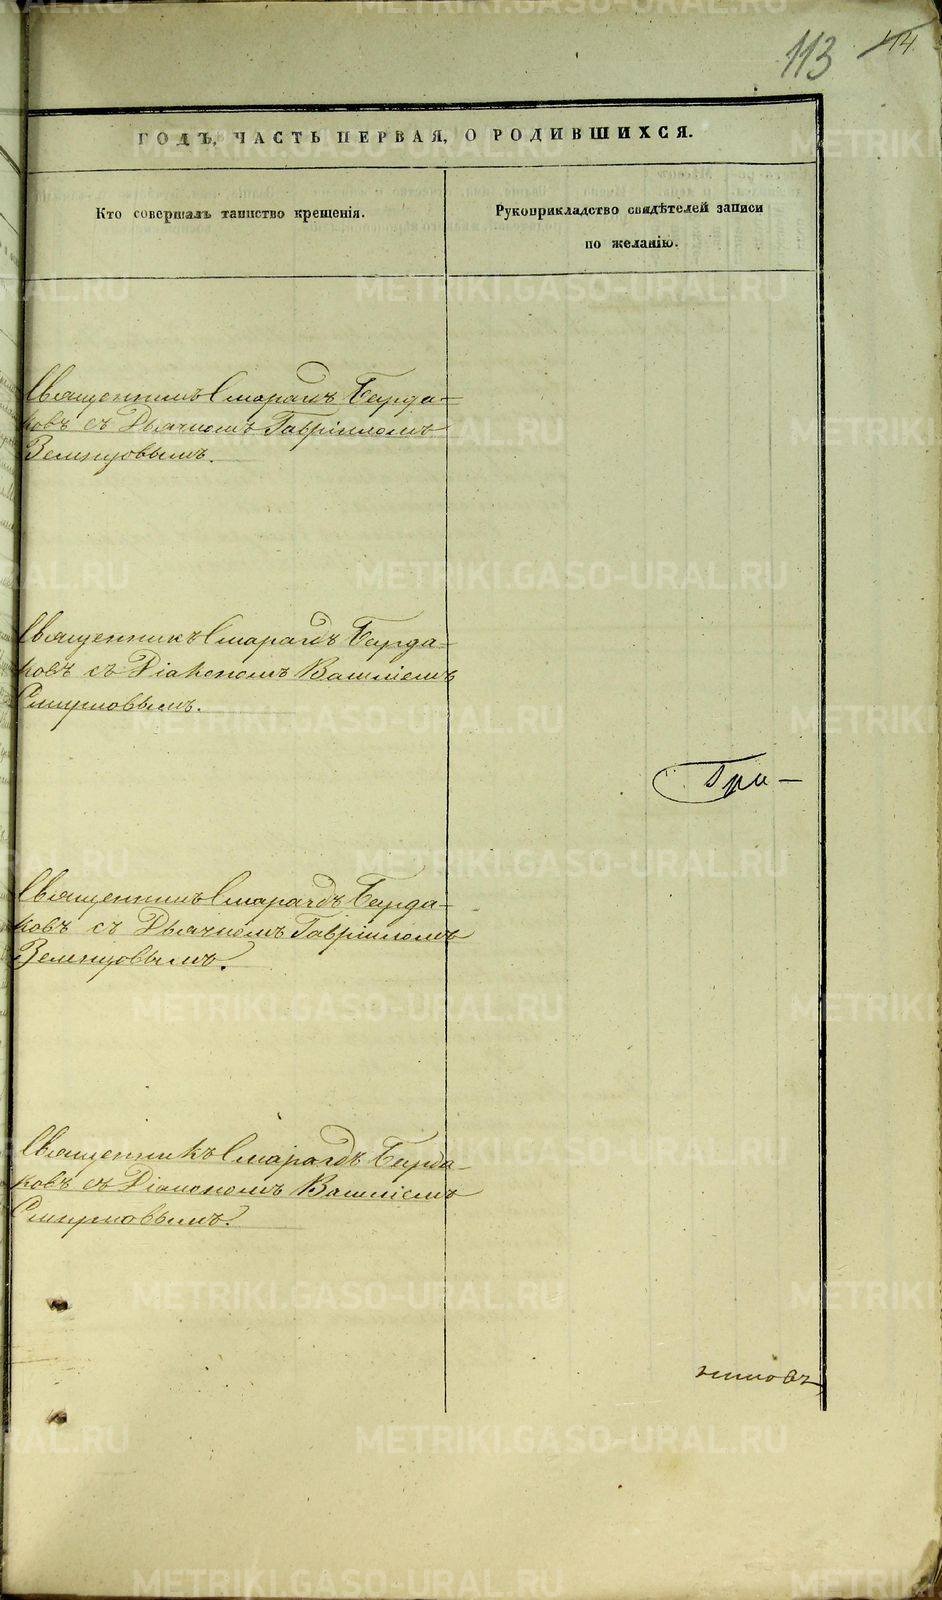 113 114
ГОДЪ, ЧАСТЬ ПЕРВАЯ, О РОДИВШИХСЯ.
Кто совершалъ таинство крещенія.
Рукоприкладство свидѣтелей записи
по желанію.
Священникъ Смарагдъ Барда-
ковъ съ Дьячкомъ Гавріиломъ
Земляцовымъ.
Священникъ Смарагдъ Барда-
ковъ съ Діакономъ Василіемъ
Смирновымъ.
Гри-
Священникъ Смарагдъ Барда-
ковъ съ Дьячкомъ Гавріиломъ
Земляцовымъ.
Священникъ Смарагдъ Барда-
ковъ съ Діакономъ Василіемъ
Смирновымъ.
METRIKI.GASO-URAL.RU